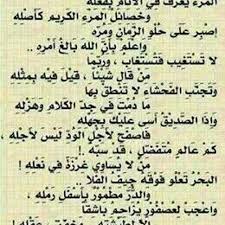 المرء يعرف في الأنام بفعله
وخصائل المرء الكريم كأصله
إصبر على حلو الزمان ومره
واعلم بأن الله بالغ أمره ..
لا تستغيب فتستغاب ، وربما
من قال شيئا ، قيل فيه بمثله
وتجنب الفحشاء لا تنطق بها
ما دمت في جد الكلام وهزله
وإذا الصديق أسى عليك بجهله
فاصفح لأجل الود ليس لأجله
كم عالم متفضل ، قد سبه .!
من لا يساوي غرزة في نعله !
البحر تعلو فوقه جيف الفلا
والدر مطمور بأسفل رمله ،
واعجب لعصفور يزاحم باشقا
إلا لطيشته